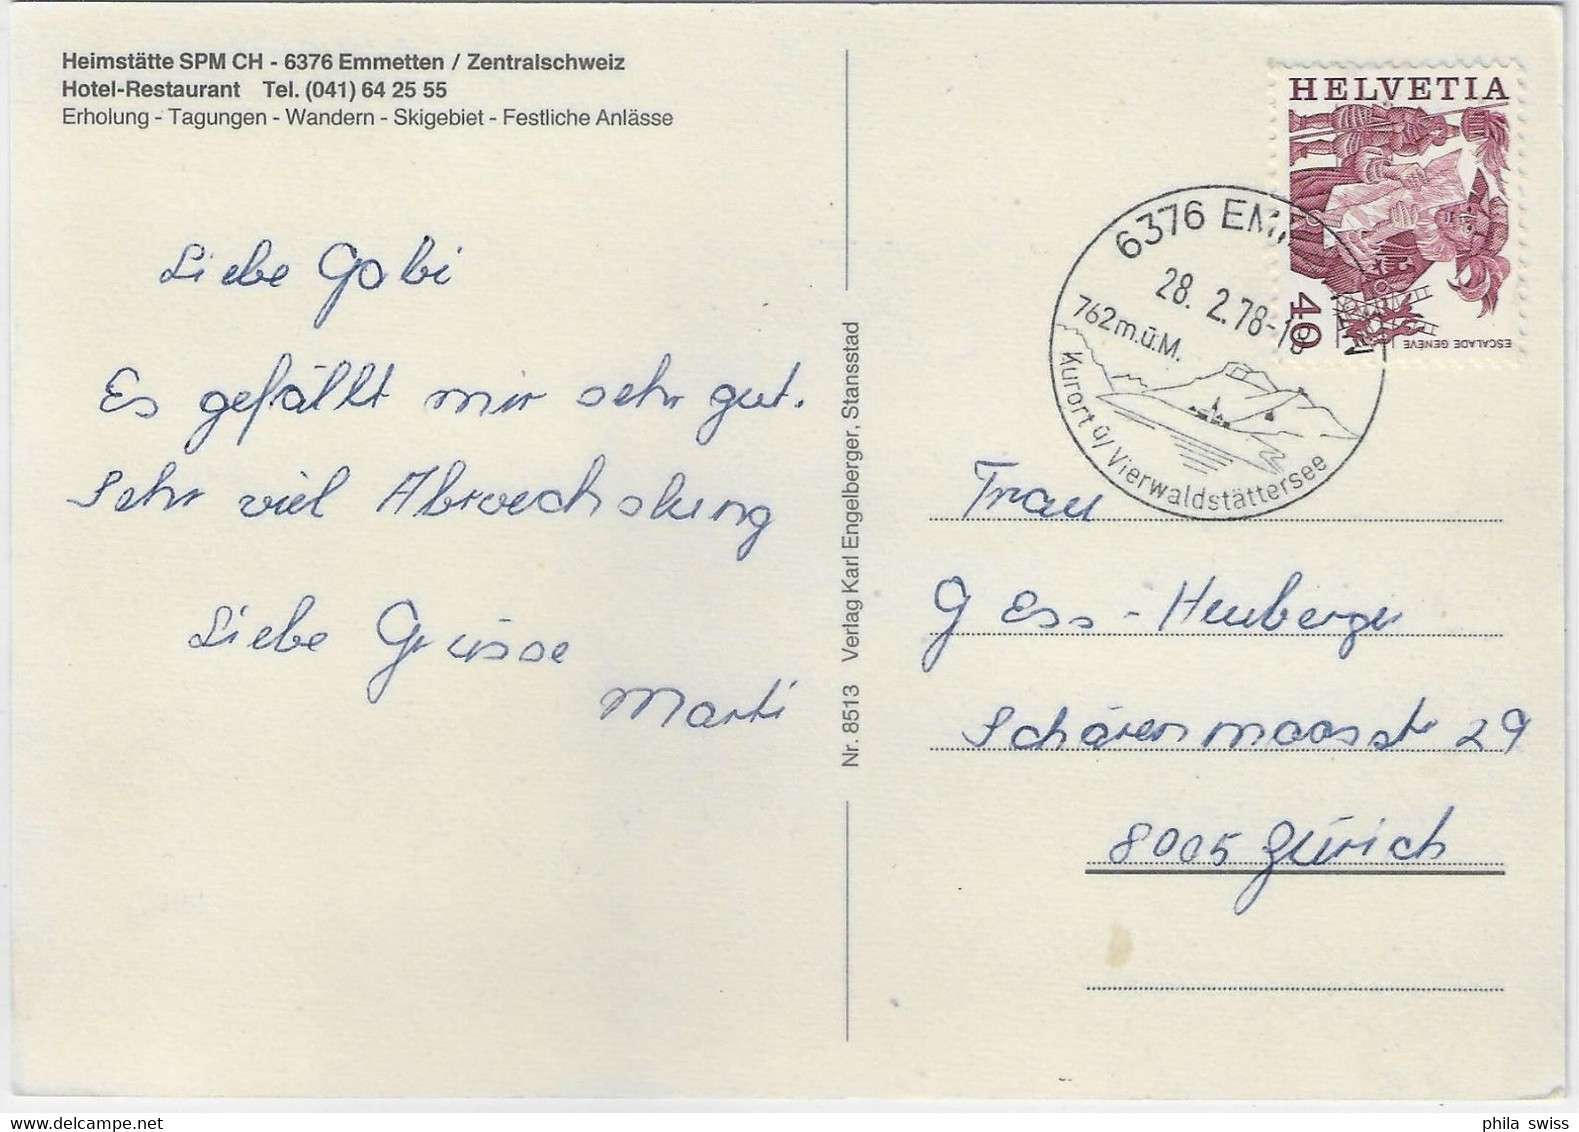 Heimstätte SPM CH - 6376 Emmetten / Zentralschweiz
Hotel-Restaurant Tel. (041) 64 25 55
Erholung - Tagungen - Wandern - Skigebiet - Festliche Anlässe
Liebe Gabi
Es gefällt mir sehr gut.
Sehr viel Abwechslung
Liebe Grüsse
Marti
Nr. 8513 Verlag Karl Engelberger, Stansstad
HELVETIA
40
ESCALADE GENÈVE
6376 EM
28. 2.78-18
762m.ü.M.
Kurort ü/Vierwaldstättersee
Frau
G Ess-Heuberger
Schärenmoosstr 29
8005 Zürich
www.delcampe.net
phila swiss